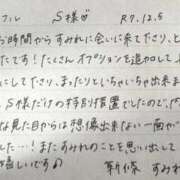 フル S様♡ R7.12.5
お時間からすみれに会いに来て下さり、と
たです！たくさんオプションを追加して
にして下さり、まったりといちゃいちゃ出
S様だけの特別措置でしたので、
な見た目からは想像出来ない一面が
した…！またすみれのことを思い出して
嬉しいです♪
新條 すみれ